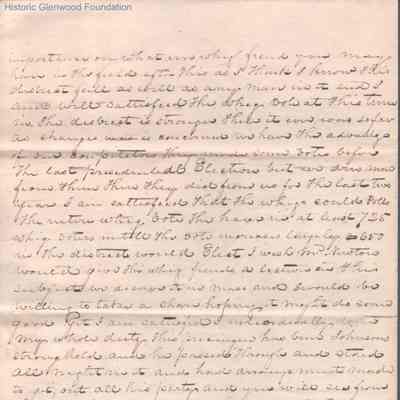 Historic Glenwood Foundation
importance on what ever whig friend you may
him in the field after this as I think I know this
district full as well as any man in it and I
am well sattesfied the whig vote at this time
in the district is stronger than it ever was so far
as changes was is concerned we have the advantage
of our competitors they made some votes before
the last presidential Election but we drew more
from them than they did from us for the last two
years I am sattesfied that the whigs could
the entire whig vote this have us at least 725
whig votes in the vote 650
in the district would Elect I wish Mr
would give the whig friends a lecture on this
subject we disserve it in mass and I would be
willing to take a share hoping it might do some
good yet I am sattesfied I individually
my whole duty this precinct has bin Johnsons
strong hold and he passed through and staid
all night in it and had arraingements made
to git out all his party and you will see from